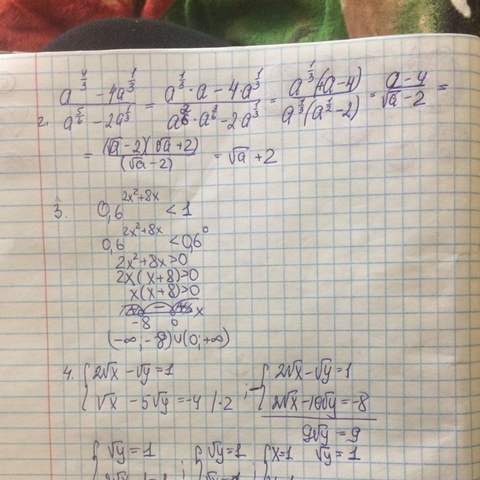 2. (a^{4/3} - 4a^{1/3}) / (a^{5/6} - 2a^{1/3}) = (a^{1/3} · a - 4a^{1/3}) / (a^{3/6} · a^{2/6} - 2a^{1/3}) = a^{1/3}(a - 4) / a^{1/3}(a^{1/2} - 2) = (a - 4) / (√a - 2) =
= (√a - 2)(√a + 2) / (√a - 2) = √a + 2
3. 0,6^{2x²+8x} < 1
0,6^{2x²+8x} < 0,6^0
2x²+8x>0
2x(x+8)>0
x(x+8)>0
+ - + x
-8 0
(-∞; -8)∪(0; +∞)
4. { 2√x - √y = 1 ; - { 2√x - √y = 1
√x - 5√y = -4 | ·2 2√x - 10√y = -8
9√y = 9
{ √y = 1 ; { √y = 1 ; { x = 1 √y = 1